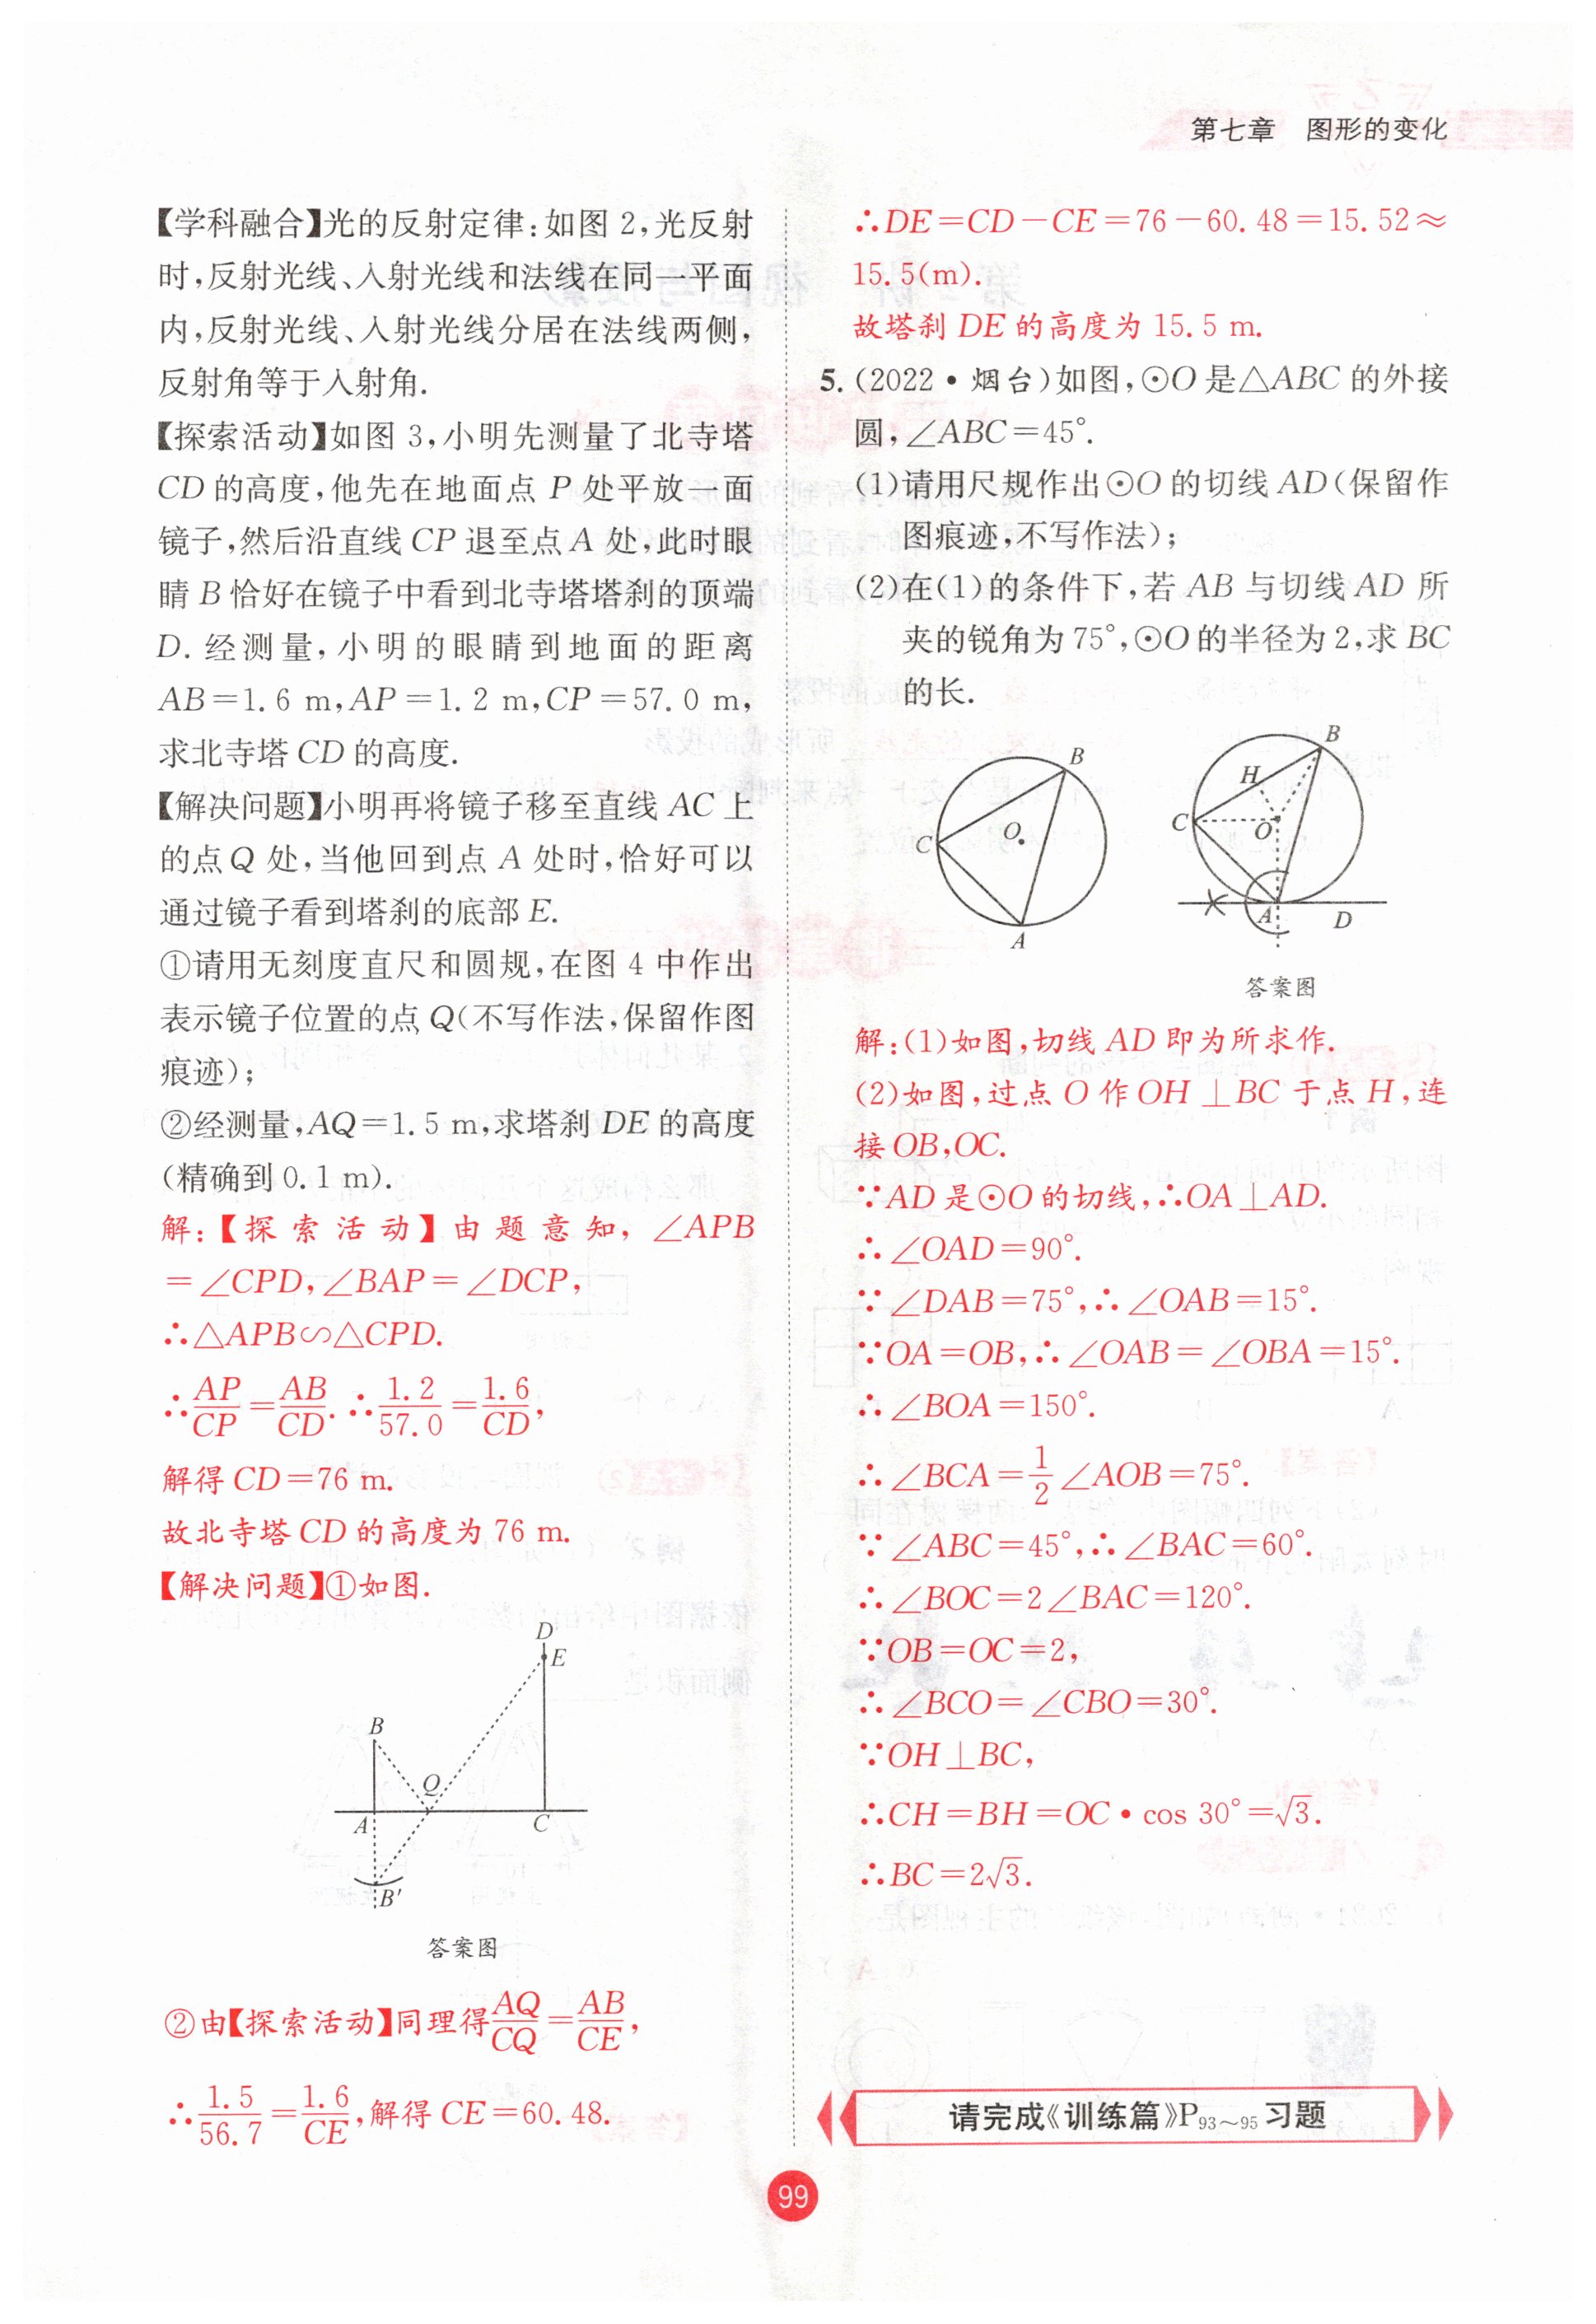 第七章 图形的变化
【学科融合】光的反射定律:如图 2,光反射
时,反射光线、入射光线和法线在同一平面
内,反射光线、入射光线分居在法线两侧,
反射角等于入射角.
【探索活动】如图 3,小明先测量了北寺塔
CD 的高度,他先在地面点 P 处平放一面
镜子,然后沿直线 CP 退至点 A 处,此时眼
睛 B 恰好在镜子中看到北寺塔塔刹的顶端
D. 经测量,小明的眼睛到地面的距离
AB=1.6 m,AP=1.2 m,CP=57.0 m,
求北寺塔 CD 的高度.
【解决问题】小明再将镜子移至直线 AC 上
的点 Q 处,当他回到点 A 处时,恰好可以
通过镜子看到塔刹的底部 E.
①请用无刻度直尺和圆规,在图 4 中作出
表示镜子位置的点 Q(不写作法,保留作图
痕迹);
②经测量,AQ=1.5 m,求塔刹 DE 的高度
(精确到 0.1 m).
解:【探索活动】由题意知,∠APB
=∠CPD,∠BAP=∠DCP,
∴△APB∽△CPD.
∴AP/CP=AB/CD. ∴1.2/57.0=1.6/CD,
解得 CD=76 m.
故北寺塔 CD 的高度为 76 m.
【解决问题】①如图.
D
E
B
Q
A
C
B′
答案图
②由【探索活动】同理得AQ/CQ=AB/CE,
∴1.5/56.7=1.6/CE,解得 CE=60.48.
∴DE=CD-CE=76-60.48=15.52≈
15.5(m).
故塔刹 DE 的高度为 15.5 m.
5. (2022·烟台)如图,⊙O 是△ABC 的外接
圆,∠ABC=45°.
(1)请用尺规作出⊙O 的切线 AD(保留作
图痕迹,不写作法);
(2)在(1)的条件下,若 AB 与切线 AD 所
夹的锐角为 75°,⊙O 的半径为 2,求 BC
的长.
B
O
C
A
B
H
C
O
A
D
答案图
解:(1)如图,切线 AD 即为所求作.
(2)如图,过点 O 作 OH⊥BC 于点 H,连
接 OB,OC.
∵AD 是⊙O 的切线,∴OA⊥AD.
∴∠OAD=90°.
∵∠DAB=75°,∴∠OAB=15°.
∵OA=OB,∴∠OAB=∠OBA=15°.
∴∠BOA=150°.
∴∠BCA=1/2∠AOB=75°.
∵∠ABC=45°,∴∠BAC=60°.
∴∠BOC=2∠BAC=120°.
∵OB=OC=2,
∴∠BCO=∠CBO=30°.
∵OH⊥BC,
∴CH=BH=OC·cos 30°=√3.
∴BC=2√3.
请完成《训练篇》P93~95 习题
99